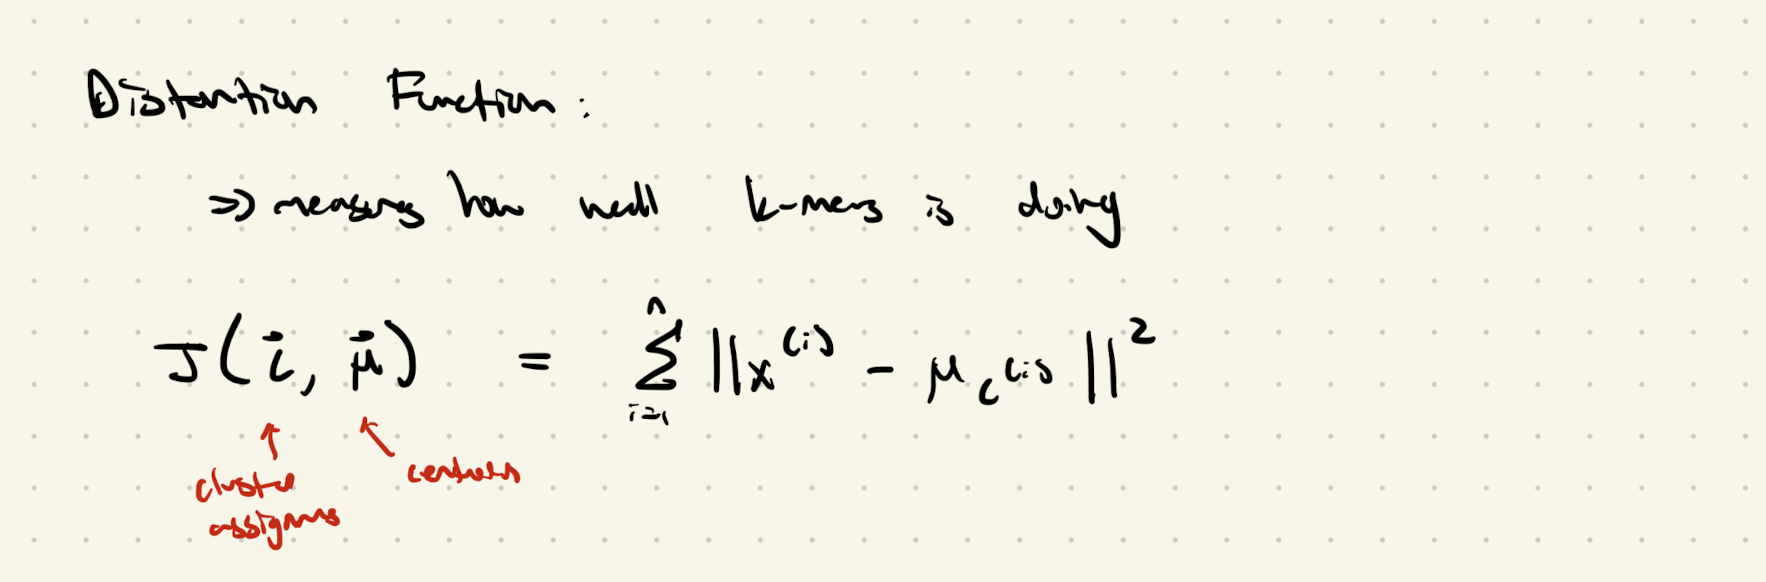 Distortion Function:
⇒ measures how well k-means is doing
J(c⃗, μ⃗) = Σ_{i=1}^{n} ||x^{(i)} - μ_{c^{(i)}}||²
cluster assignments
centroids